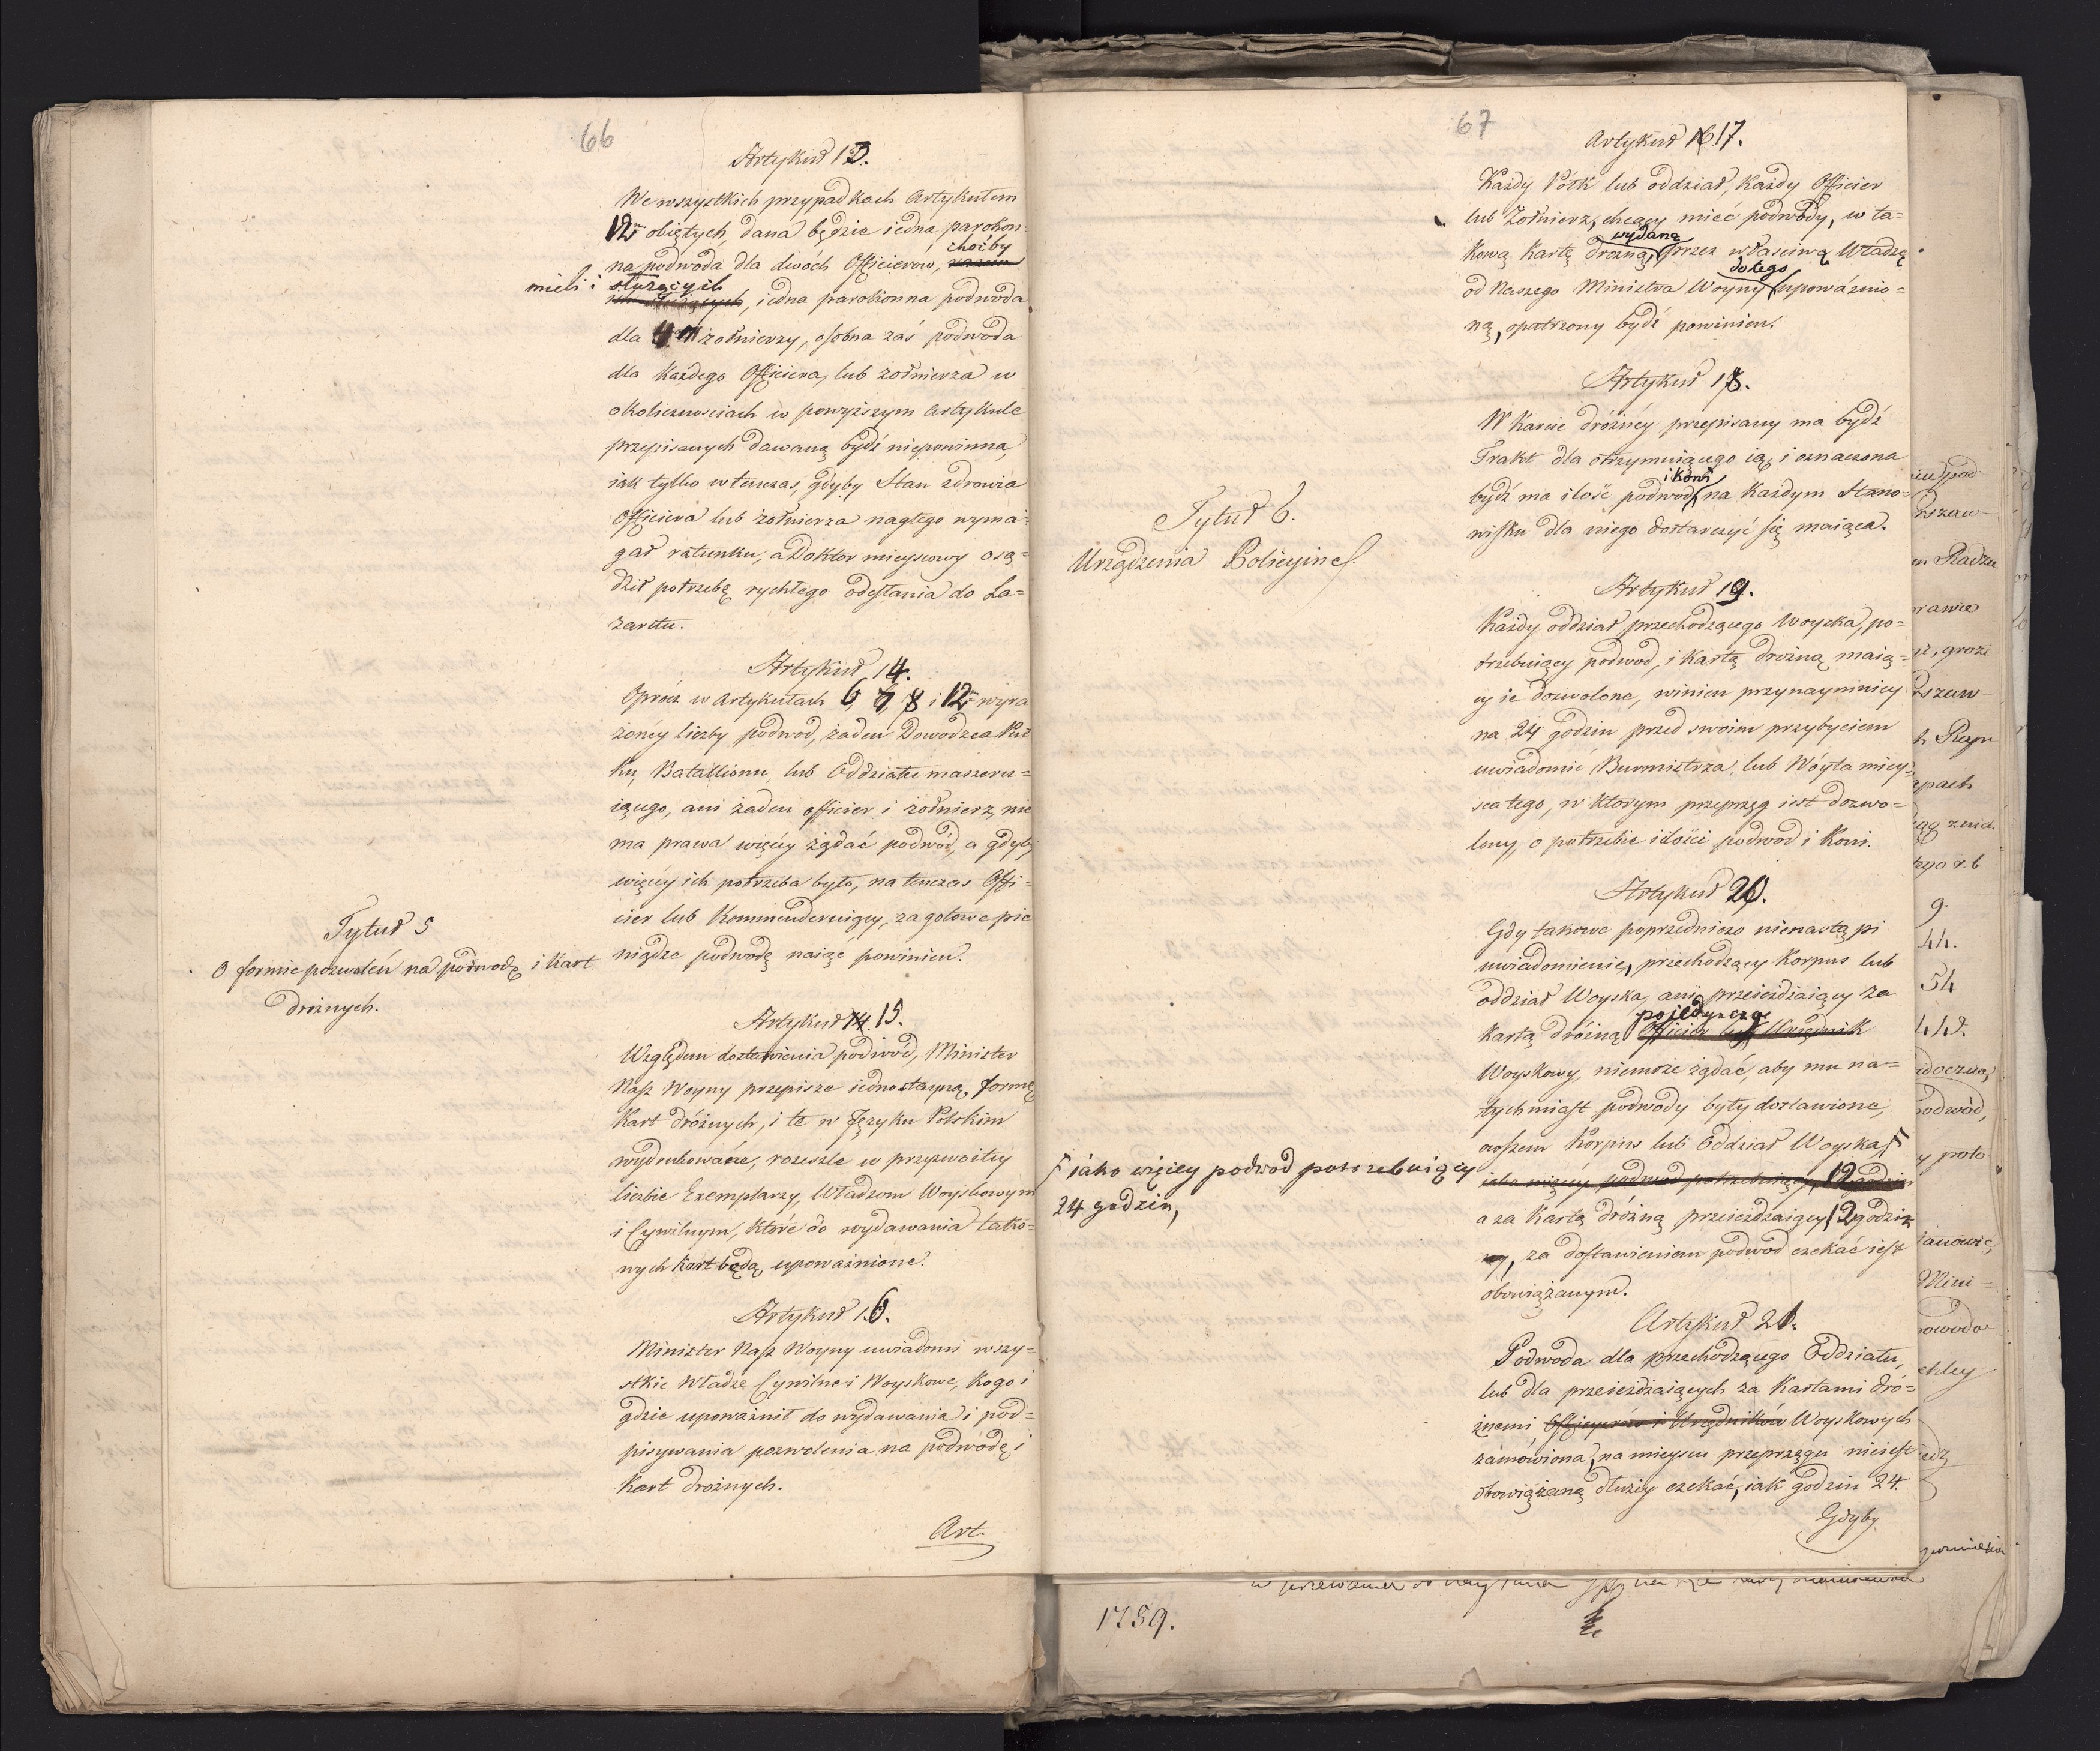 66
Artykuł 13.
We wszystkich przypadkach Artykułem
12m obiętych, dana będzie iedna parokon=
na podwoda dla dwóch Officierow, choćby
mieli i służących, iedna parokonna podwoda
dla 4 żołnierzy, osobna zaś podwoda
dla każdego Officiera, lub żołnierza w
okolicznosciach w powyższym Artykule
przepisanych dawaną bydź niepowinna,
iak tylko w tenczas, gdyby Stan zdrowia
Officiera lub żołnierza nagłego wyma=
gał ratunku, a Doktor mieyscowy osą=
dził potrzebę rychłego odesłania do La=
zaretu.
Artykuł 14.
Oprócz w Artykułach 6, 7, 8 i 12m wyra
żoney liczby podwod, żaden Dowodzca Puł
ku, Batallionu, lub Oddziału maszeru=
iącego, ani żaden officier i żołnierz nie
ma prawa więcéy żądać podwód, a gdyby
więcéy ich potrzeba było, na tenczas Offi=
cier lub Kommenderuiący, za gotowe pie
niądze podwodę naiąć powinien.
Tytuł 5
O formie pozwoleń na podwodę i Kart
drożnych.
Artykuł 14. 15.
Względem dostawienia podwód, Minister
Nasz Woyny przepisze iednostayną formę
Kart dróżnych, i te w Języku Polskim
wydrukowane, rozeszle w przyzwoitey
liczbie Exemplarzy, Władzom Woyskowym
i Cywilnym, które do wydawania tako=
wych kart będą upoważnione.
Artykuł 16.
Minister Nasz Woyny uwiadomi wszy=
stkie Władze Cywilne i Woyskowe, kogo i
gdzie upoważnił do wydawania i pod=
pisywania pozwolenia na podwodę i
Kart drożnych.
Art.
67
Artykuł 16 17.
Każdy Półk lub oddział, każdy Officier
lub Żołnierz, chcący mieć podwody, w ta=
kową Kartę drożną, wydaną przez właściwą Władzę
od Naszego Ministra Woyny do tego upoważnio=
ną, opatrzony bydź powinien.
Artykuł 18.
W Karcie dróżnéy przepisany ma bydź
Trakt dla otrzymuiącego ią, i oznaczona
bydź ma ilość podwod i koni na każdym Stano=
wisku dla niego dostarczyć się maiąca.
Tytuł 6.
Urządzenia Policyine.
Artykuł 19.
Każdy oddział przechodzącego Woyska, po=
trzebuiący podwod, i Kartą drożną maią=
cy ie dozwolone, winien przynaymniey
na 24 godzin przed swoim przybyciem
uwiadomić Burmistrza, lub Wóyta miey=
sca tego, w którym przeprząg iest dozwo=
lony, o potrzebie ilości podwod i Koni.
Artykuł 20.
Gdy takowe poprzedniczo nienastąpi
uwiadomienie, przechodzący Korpus lub
oddział Woyska, ani przeieżdzaiący za
kartą dróżną pojedynczo Officier lub Urzędnik
Woyskowy, niemoże żądać, aby mu na=
tychmiast podwody były dostawione,
owszem Korpus lub Oddział Woyska F
F iako więcey podwod potrzebuiący
24 godzin,
iako więcéy podwod potrzebuiący, 12 godzin
a za Kartą dróżną przeieżdzaiący 12 godzin
za dostawieniem podwod czekać iest
obowiązanym.
Artykuł 21.
Podwoda dla przechodzącego Oddziału,
lub dla przeieżdzaiących za Kartami dró=
żnemi, Officyerów i Urzędników Woyskowych
zamówiona, na mieyscu przeprzęgu nieiest
obowiązaną dłużéy czekać, iak godzin 24.
Gdyby
1759.